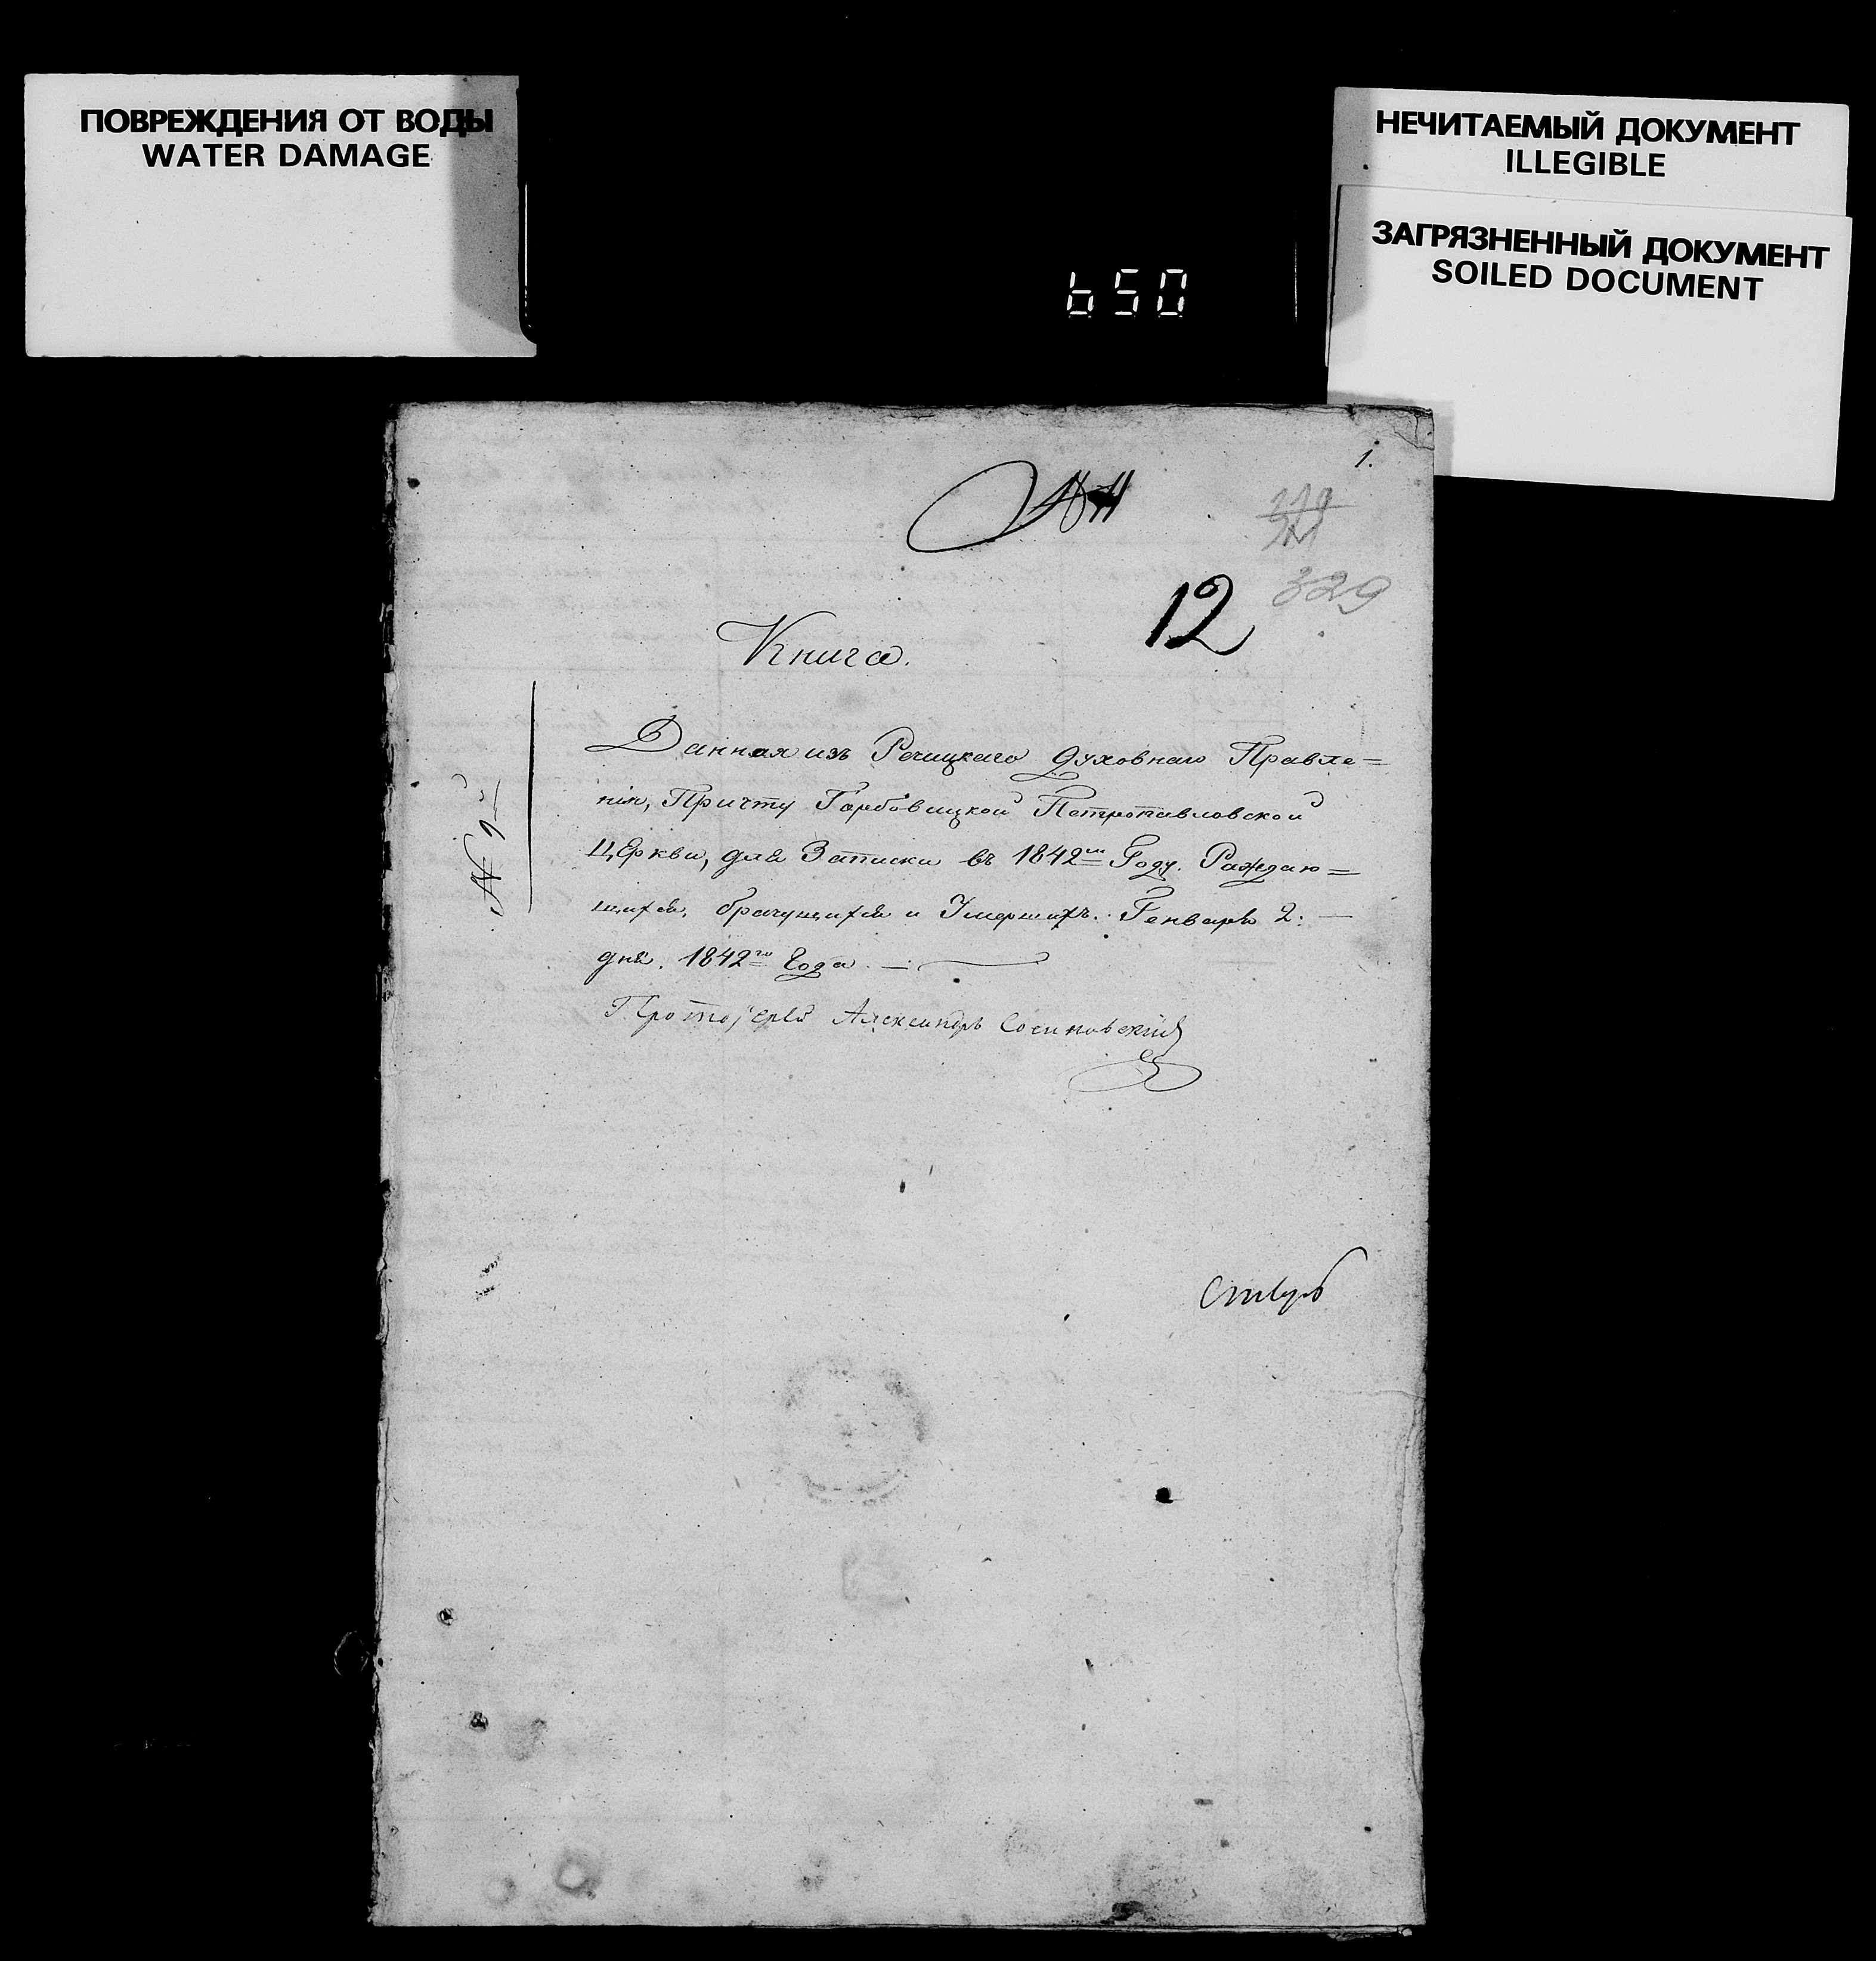 ПОВРЕЖДЕНИЯ ОТ ВОДЫ
WATER DAMAGE
НЕЧИТАЕМЫЙ ДОКУМЕНТ
ILLEGIBLE
ЗАГРЯЗНЕННЫЙ ДОКУМЕНТ
SOILED DOCUMENT
650
1.
12
329
Книга.
Данная изъ Речицкаго Духовнаго Правле=
нія, Причту Горбовицкой Петропавловской
Церкви, для Записки въ 1842мъ Году. Раждаю=
щихся, брачущихся и Умершихъ. Генваря 2:
дня. 1842го Года.
Протоіерей Александръ Сосиновскій
№ 9й